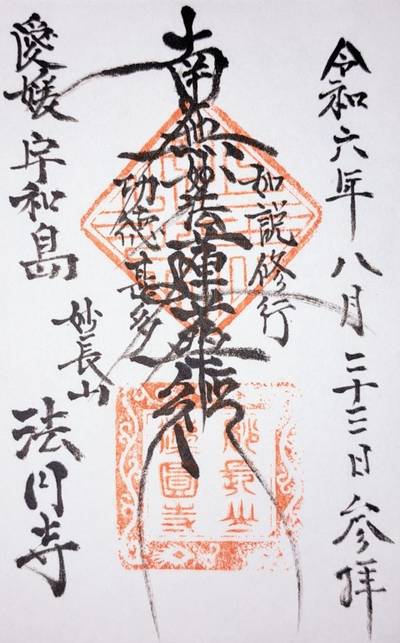 令和六年八月二十三日参拝
如説修行
南無妙法蓮華経
功徳甚多
妙長山
法圓寺
愛媛宇和島
妙長山
法円寺